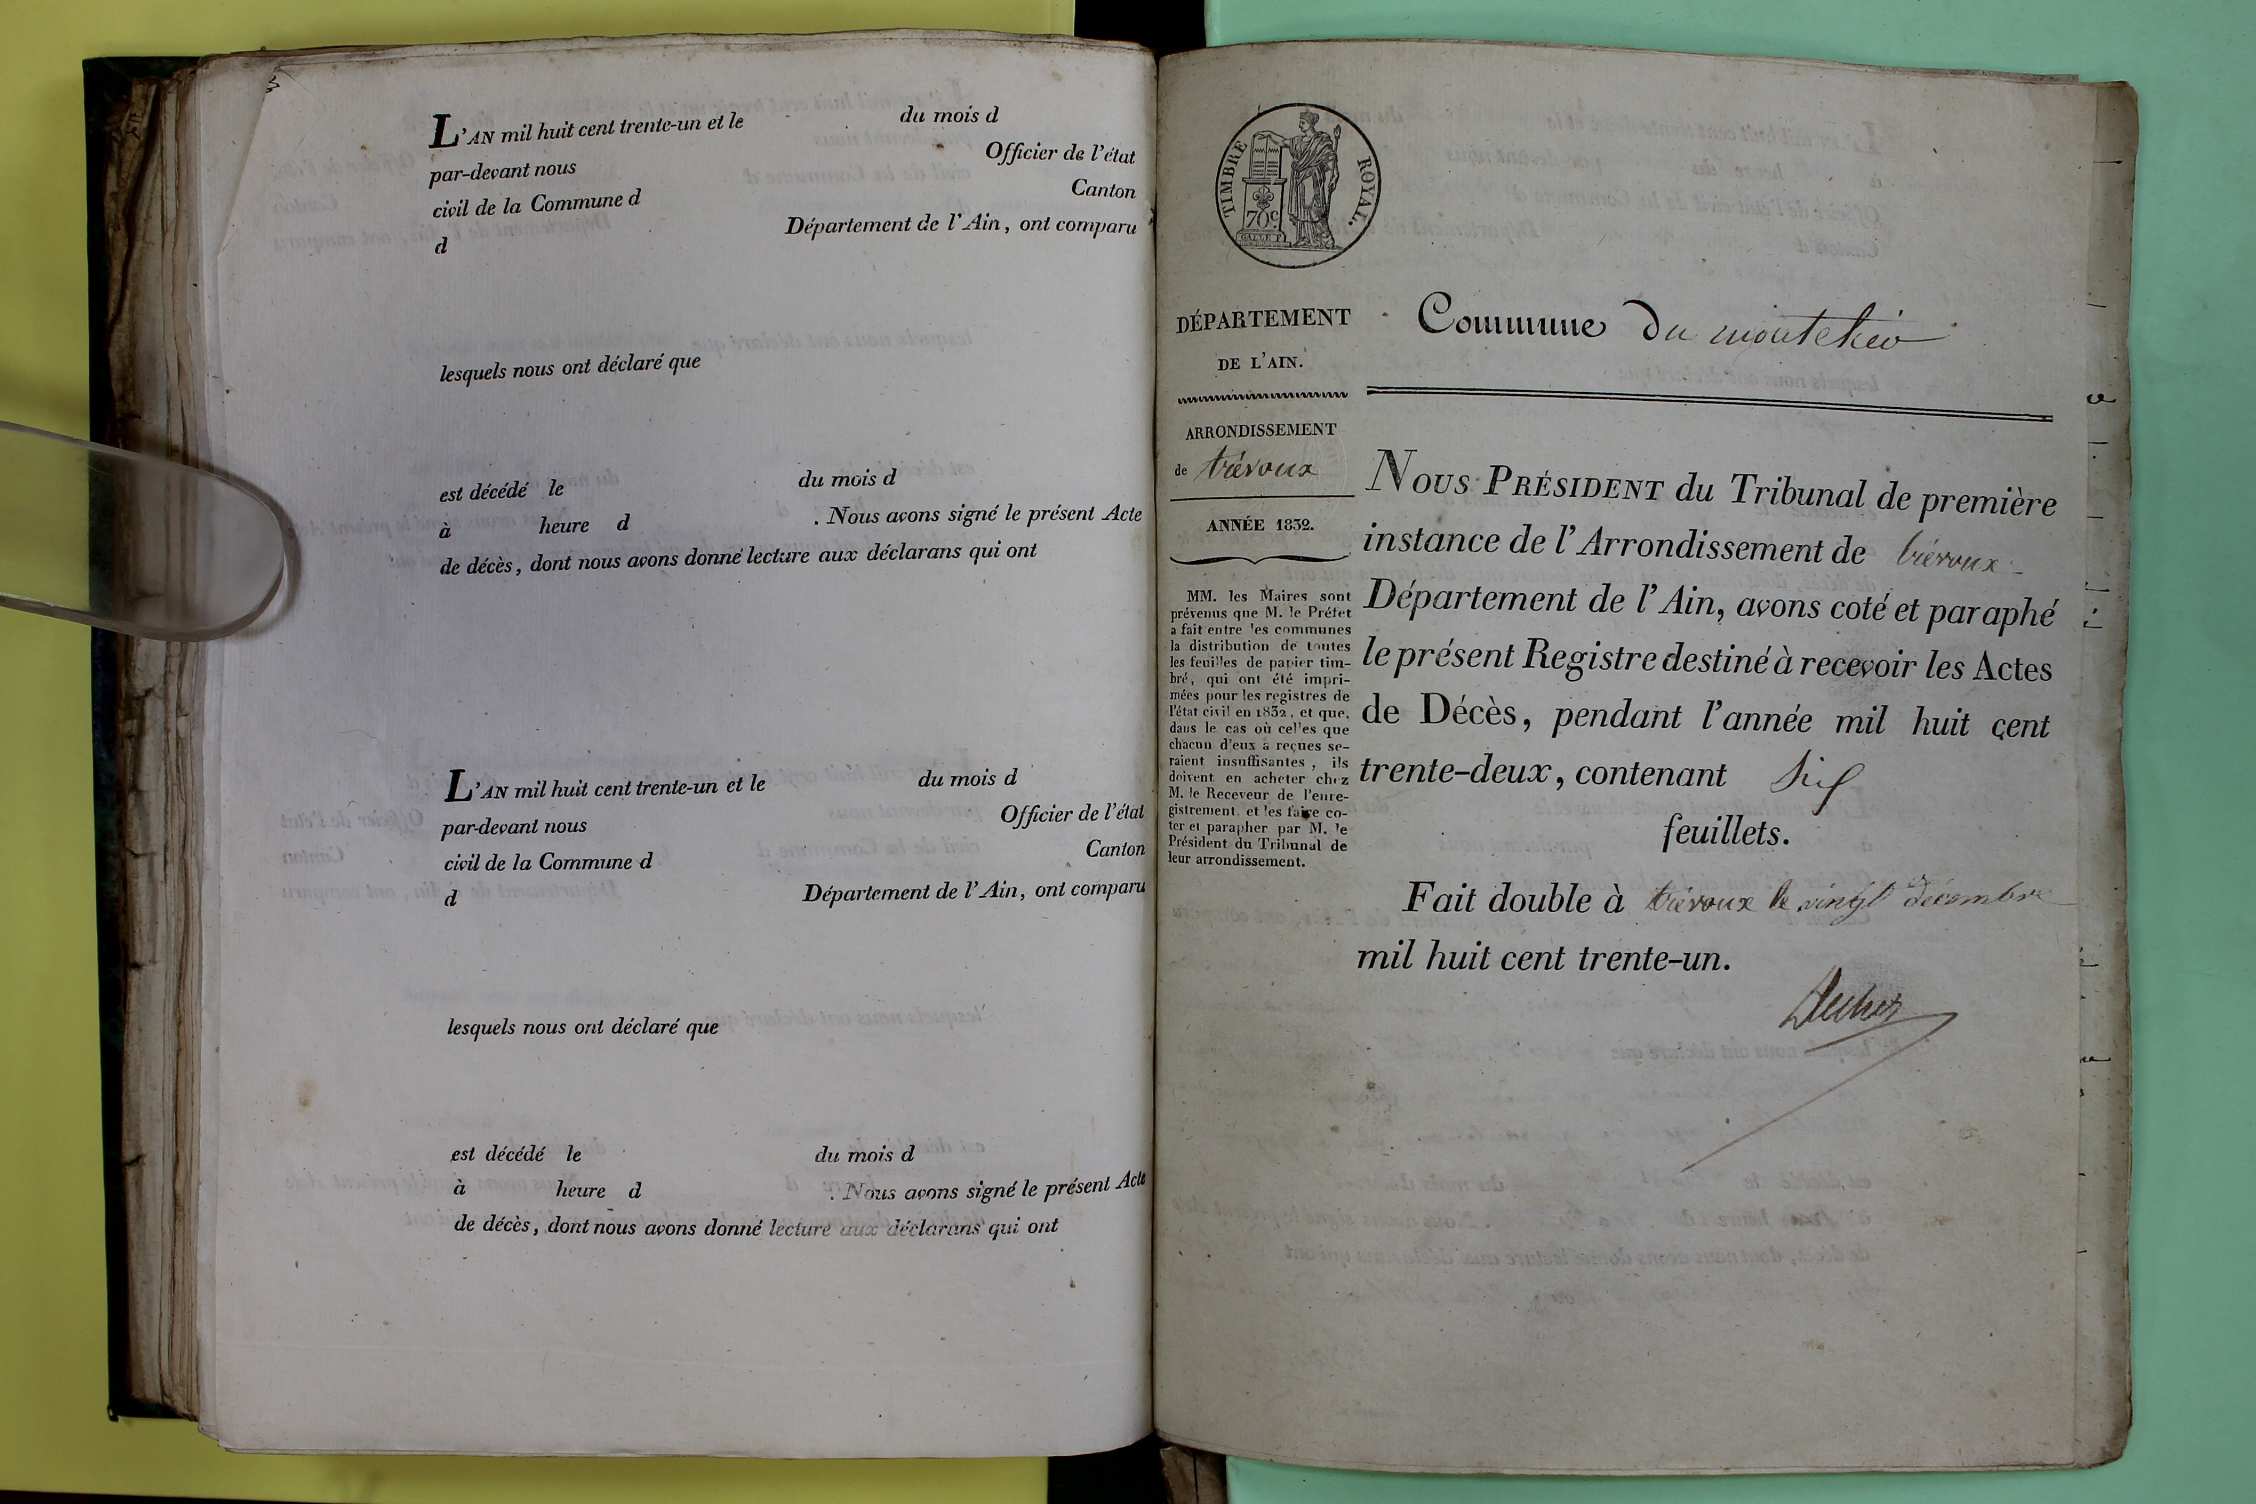 L'AN mil huit cent trente-un et le du mois d
par-devant nous Officier de l'état
civil de la Commune d Canton
d Département de l'Ain, ont comparu
lesquels nous ont déclaré que
est décédé le du mois d
à heure d . Nous avons signé le présent Acte
de décès, dont nous avons donné lecture aux déclarans qui ont
L'AN mil huit cent trente-un et le du mois d
par-devant nous Officier de l'état
civil de la Commune d Canton
d Département de l'Ain, ont comparu
lesquels nous ont déclaré que
est décédé le du mois d
à heure d . Nous avons signé le présent Acte
de décès, dont nous avons donné lecture aux déclarans qui ont
TIMBRE ROYAL.
70c
DÉPARTEMENT
DE L'AIN.
ARRONDISSEMENT
de trévoux
ANNÉE 1832.
MM. les Maires sont
prévenus que M. le Préfet
a fait entre les communes
la distribution de toutes
les feuilles de papier tim-
bré, qui ont été impri-
mées pour les registres de
l'état civil en 1832, et que,
dans le cas où celles que
chacun d'eux a reçues se-
raient insuffisantes, ils
doivent en acheter chez
M. le Receveur de l'enre-
gistrement, et les faire co-
ter et parapher par M. le
Président du Tribunal de
leur arrondissement.
Commune du
NOUS PRÉSIDENT du Tribunal de première
instance de l'Arrondissement de trévoux
Département de l'Ain, avons coté et paraphé
le présent Registre destiné à recevoir les Actes
de Décès, pendant l'année mil huit cent
trente-deux, contenant six
feuillets.
Fait double à trévoux le vingt décembre
mil huit cent trente-un.